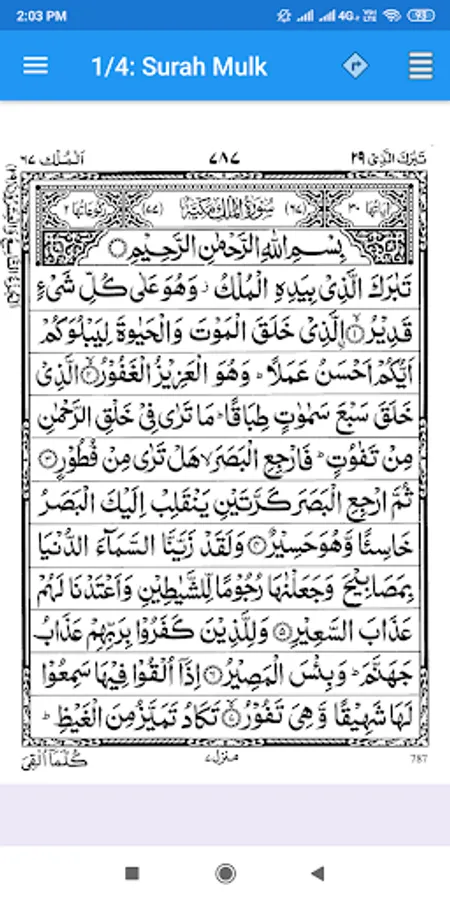 2:03 PM 4G 93
1/4: Surah Mulk
تَبٰرَكَ الَّذِیْ ۲۹ ۷۸۷ اَلْمُلْك ۶۷
اٰیَاتُهَا ۳۰ (۶۷) سُوْرَةُ الْمُلْكِ مَكِّیَّةٌ (۷۷) رُكُوْعَاتُهَا ۲
بِسْمِ اللّٰهِ الرَّحْمٰنِ الرَّحِیْمِ
تَبٰرَكَ الَّذِیْ بِیَدِهِ الْمُلْكُ ؗ وَهُوَ عَلٰی كُلِّ شَیْءٍ
قَدِیْرُ ۙ﴿۱﴾ اِۨلَّذِیْ خَلَقَ الْمَوْتَ وَالْحَیٰوةَ لِیَبْلُوَكُمْ
اَیُّكُمْ اَحْسَنُ عَمَلًا ؕ وَهُوَ الْعَزِیْزُ الْغَفُوْرُ ۙ﴿۲﴾ الَّذِیْ
خَلَقَ سَبْعَ سَمٰوٰتٍ طِبَاقًا ؕ مَا تَرٰی فِیْ خَلْقِ الرَّحْمٰنِ
مِنْ تَفٰوُتٍ ؕ فَارْجِعِ الْبَصَرَ ۙ هَلْ تَرٰی مِنْ فُطُوْرٍ ﴿۳﴾
ثُمَّ ارْجِعِ الْبَصَرَ كَرَّتَیْنِ یَنْقَلِبْ اِلَیْكَ الْبَصَرُ
خَاسِئًا وَّهُوَ حَسِیْرٌ ﴿۴﴾ وَلَقَدْ زَیَّنَّا السَّمَآءَ الدُّنْیَا
بِمَصَابِیْحَ وَجَعَلْنٰهَا رُجُوْمًا لِّلشَّیٰطِیْنِ وَاَعْتَدْنَا لَهُمْ
عَذَابَ السَّعِیْرِ ﴿۵﴾ وَلِلَّذِیْنَ كَفَرُوْا بِرَبِّهِمْ عَذَابُ
جَهَنَّمَ ؕ وَبِئْسَ الْمَصِیْرُ ﴿۶﴾ اِذَاۤ اُلْقُوْا فِیْهَا سَمِعُوْا
لَهَا شَهِیْقًا وَّهِیَ تَفُوْرُ ۙ﴿۷﴾ تَكَادُ تَمَیَّزُ مِنَ الْغَیْظِ ؕ
كُلَّمَاۤ اُلْقِیَ منزل ۷ 787